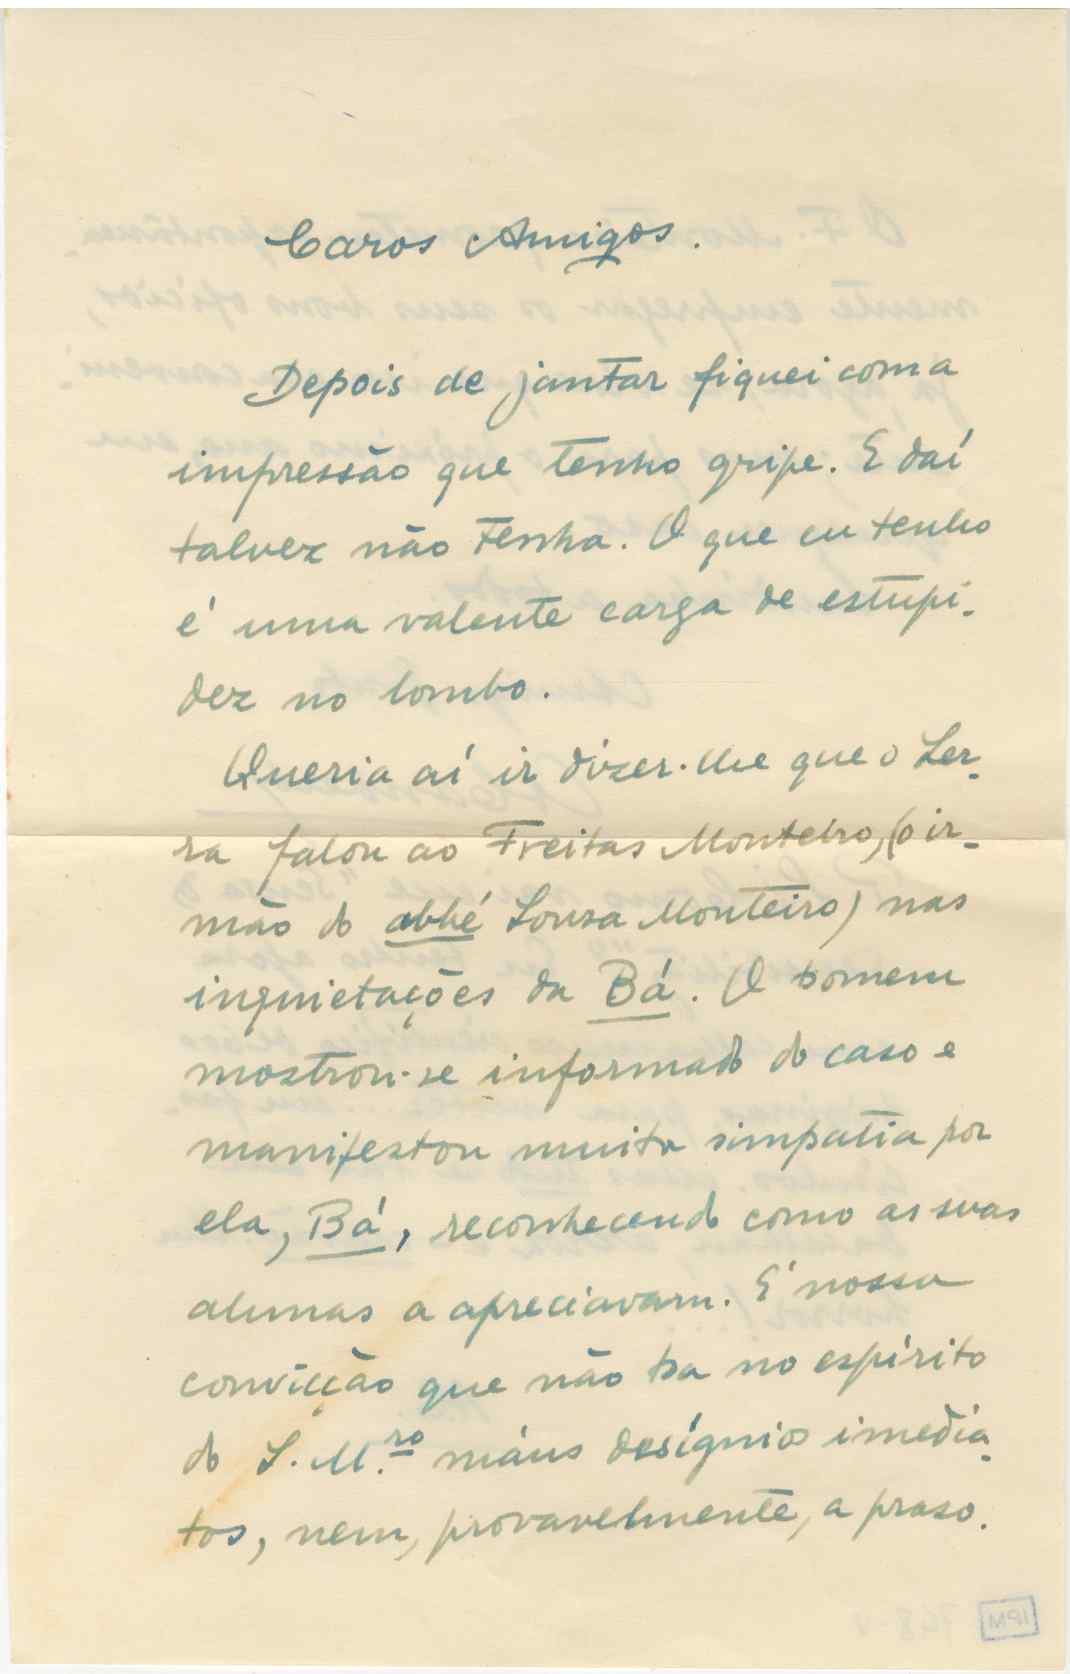 Caros Amigos.
Depois de jantar fiquei com a
impressão que tenho gripe. E daí
talvez não tenha. O que eu tenho
é uma valente carga de estupi-
dez no lombo.
Queria aí ir dizer-lhe que o Ser-
ra falou ao Freitas Monteiro, (o ir-
mão do abbé Souza Monteiro) nas
inquietações da Bá. O homem
mostrou-se informado do caso e
manifestou muita simpatia por
ela, Bá, reconhecendo como as suas
alunas a apreciavam. É nossa
convicção que não ha no espírito
do S. M.ro máus desígnios imedia-
tos, nem, provavelmente, a praso.
IPM